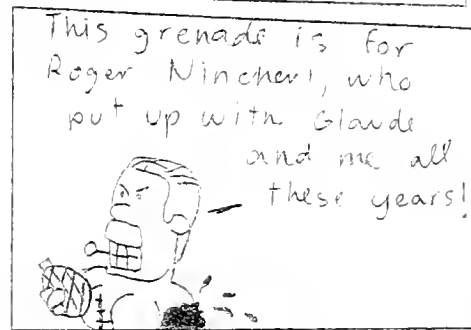 This grenade is for
Roger Nincheri, who
put up with Glaude
and me all
these years!